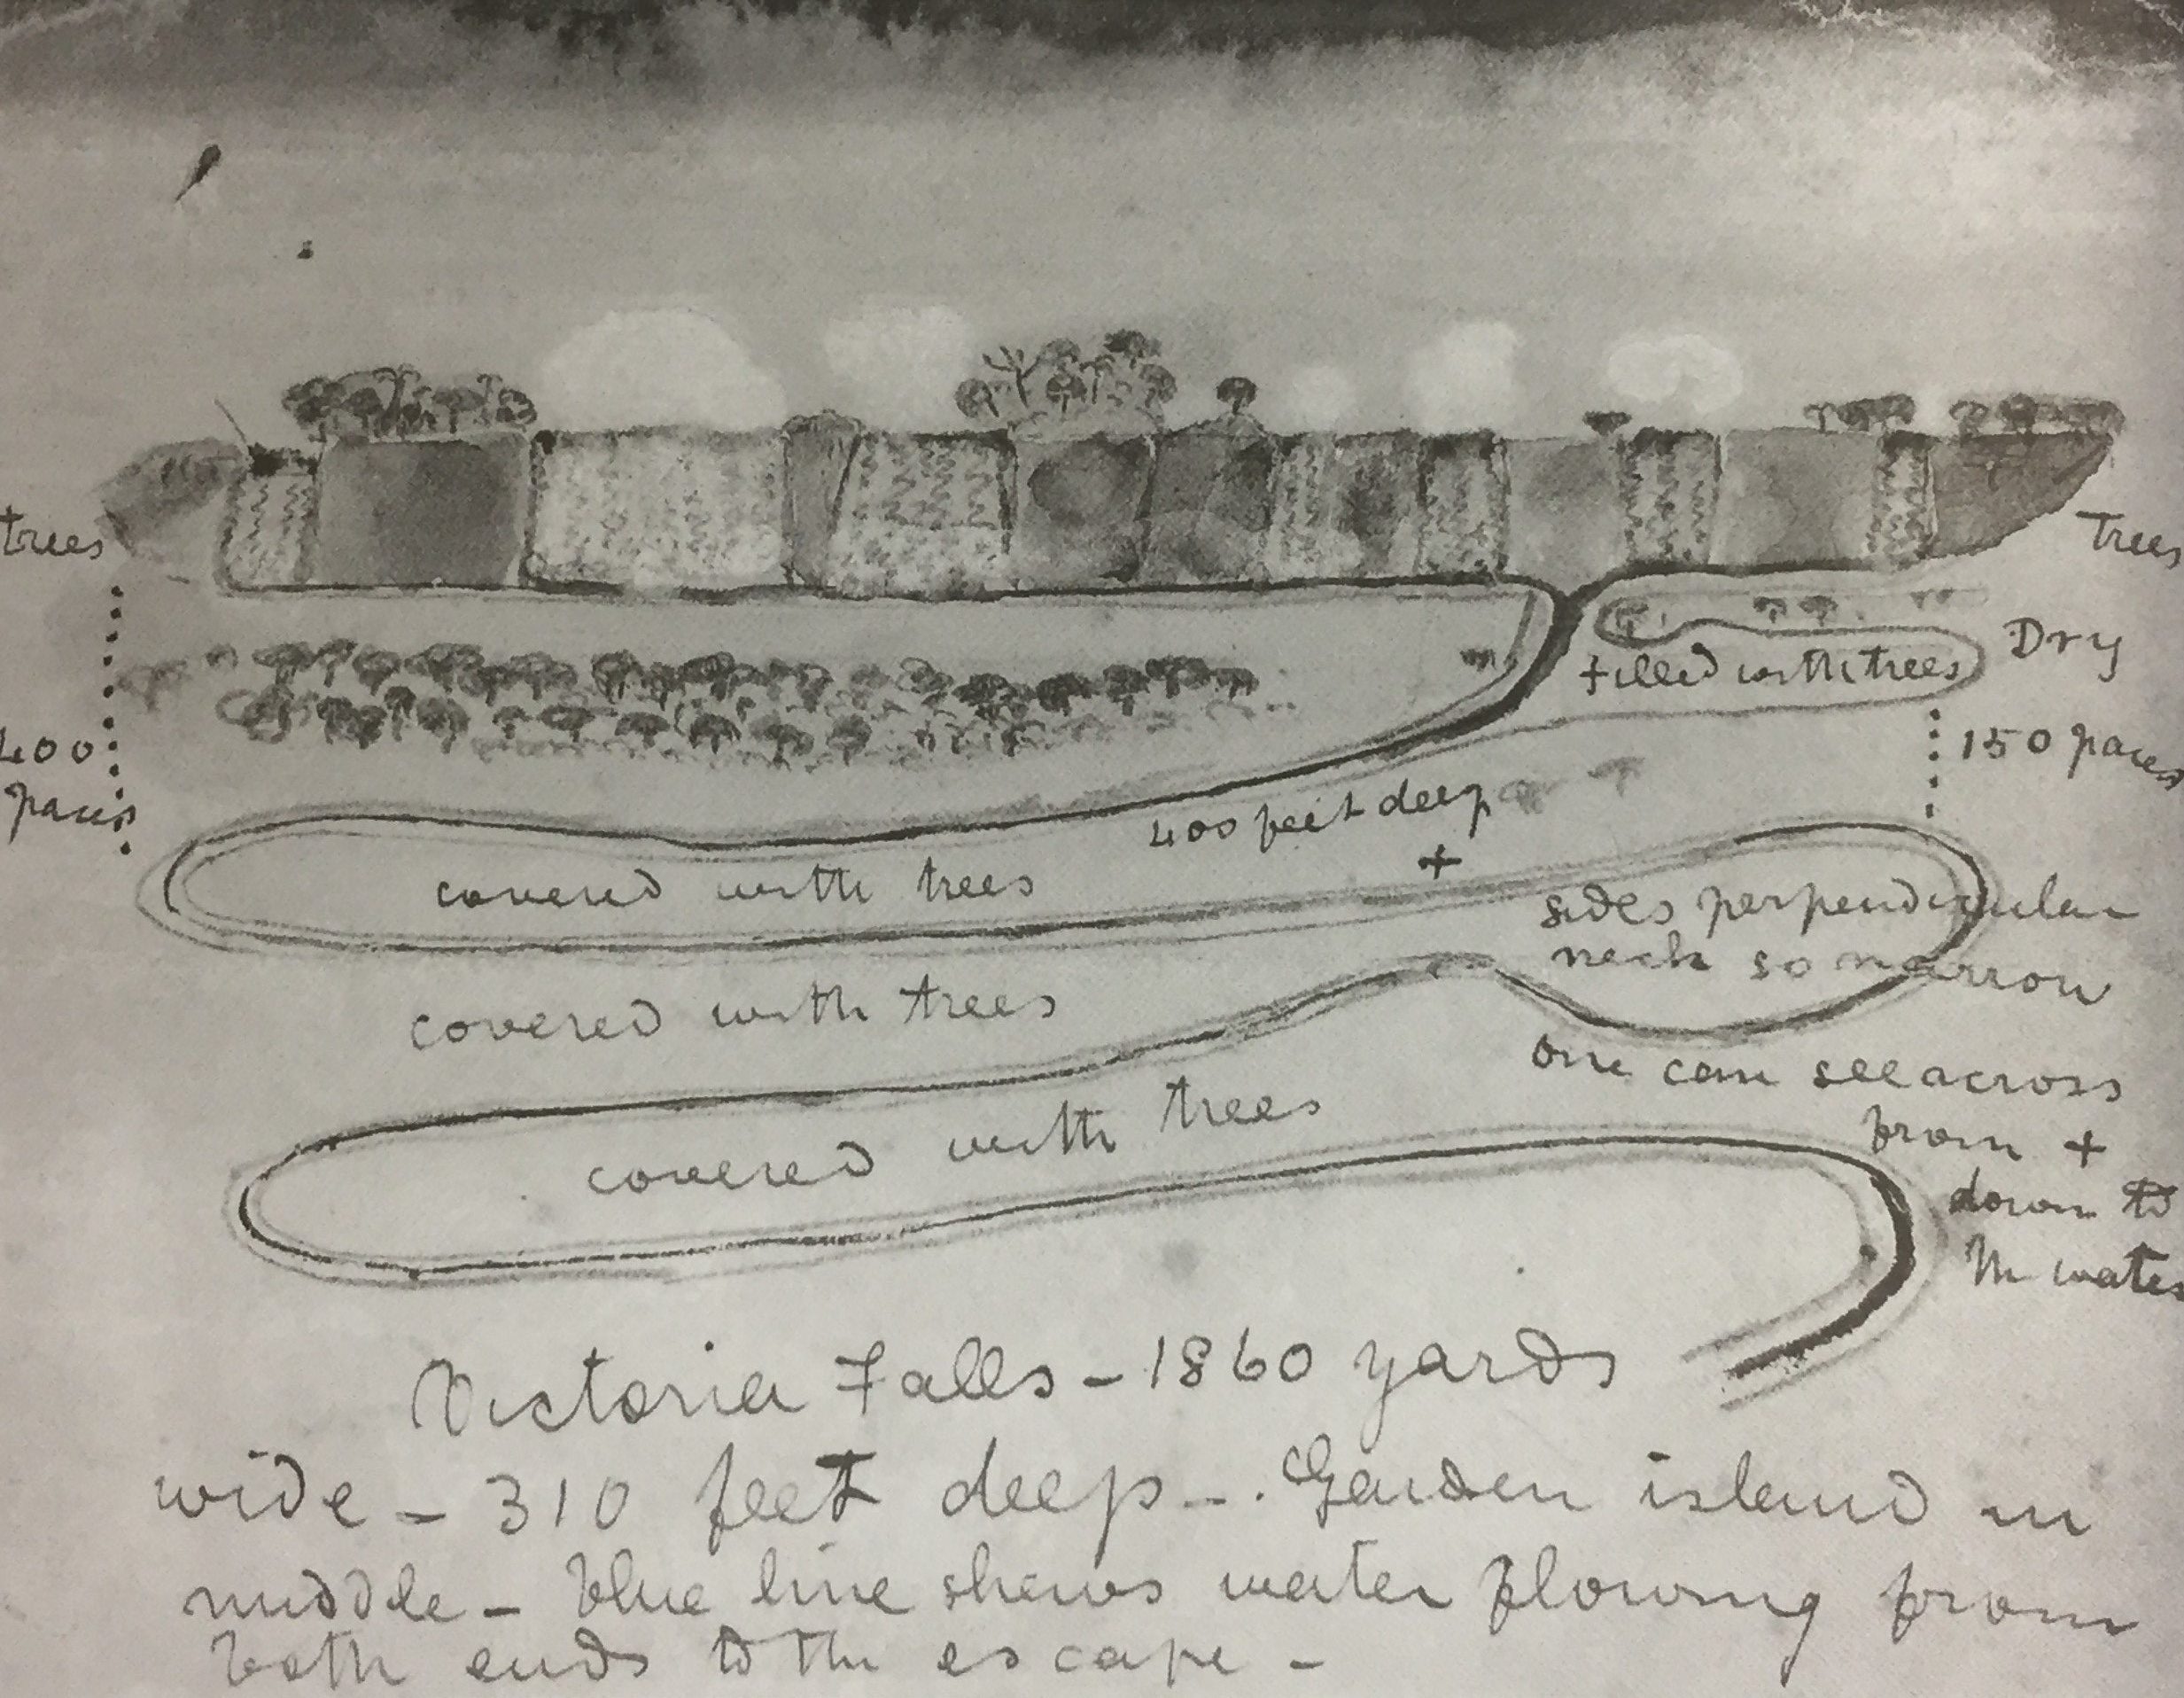 trees
Trees
Dry
filled with trees
400
paces
150 paces
400 feet deep
+
covered with trees
sides perpendicular
neck so narrow
covered with trees
one can see across
from +
down to
the water
covered with trees
Victoria Falls - 1860 yards
wide - 310 feet deep -. Garden island in
middle - blue line shews water flowing from
both ends to the escape -